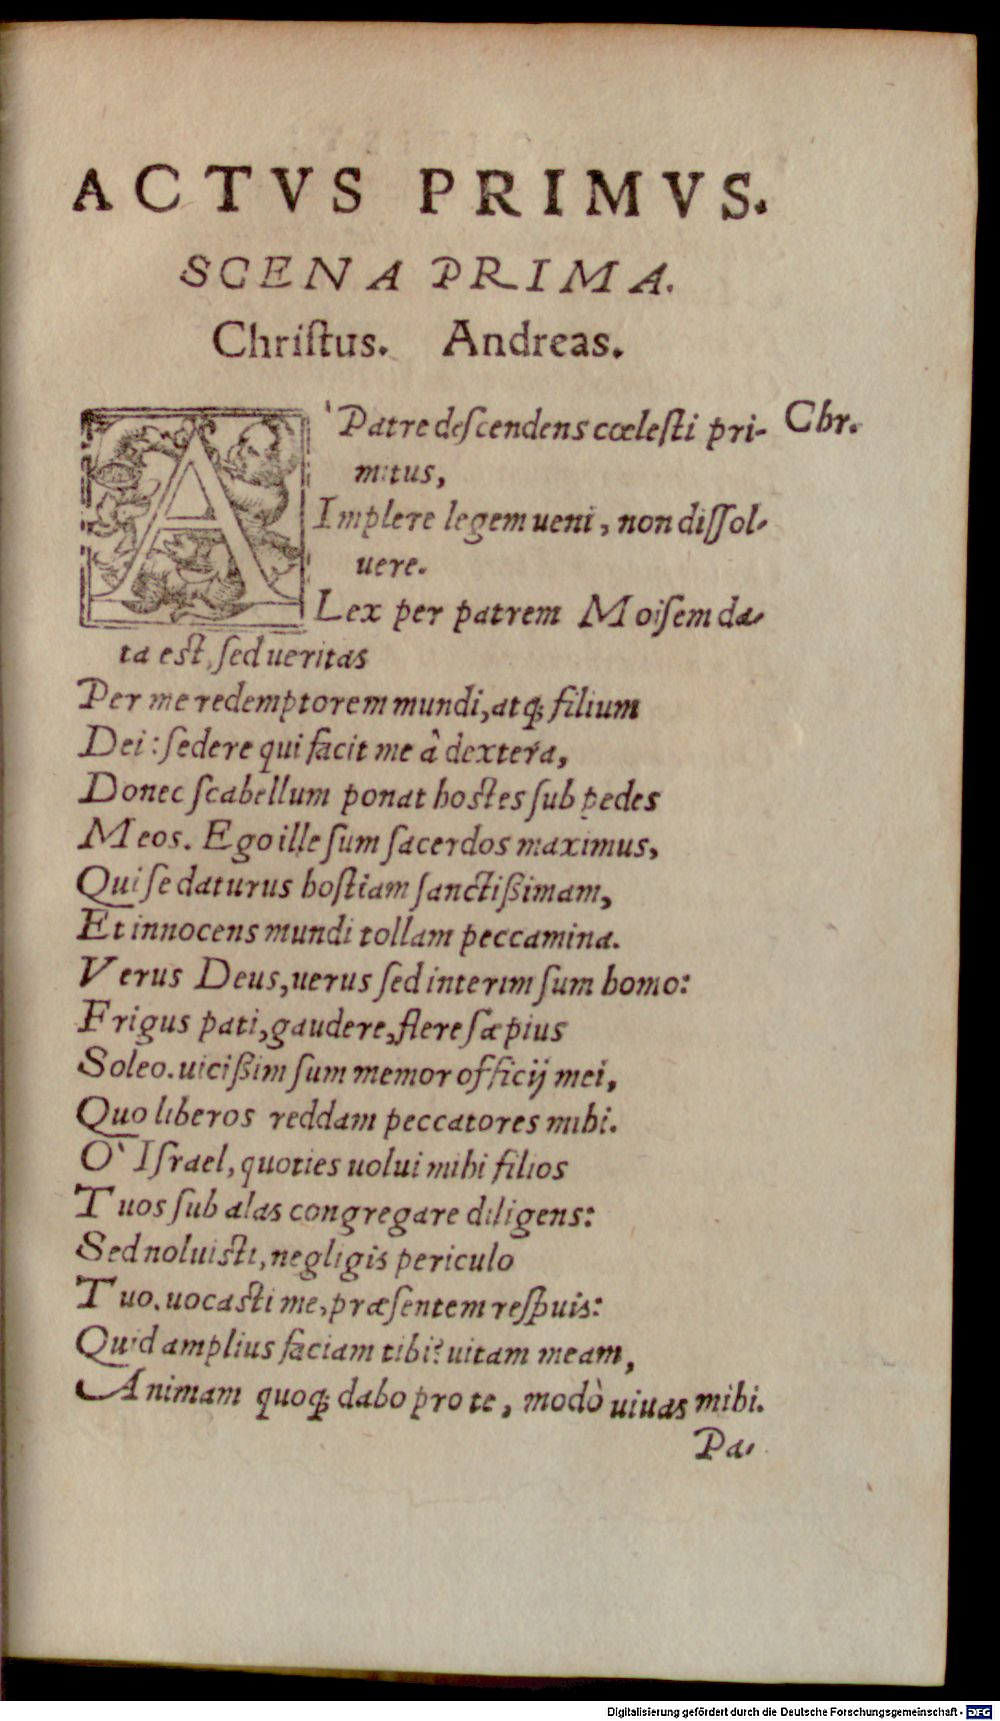 ACTVS PRIMVS.
SCENA PRIMA.
Chriſtus. Andreas.
A` Patre deſcendens cœleſti pri- Chr.
mitus,
Implere legem ueni, non diſſol-
uere.
Lex per patrem Moiſem da-
ta eſt, ſed ueritas
Per me redemptorem mundi, atq; filium
Dei: ſedere qui facit me â dextera,
Donec ſcabellum ponat hostes ſub pedes
Meos. Ego ille ſum ſacerdos maximus,
Qui ſe daturus hoſtiam ſanctißimam,
Et innocens mundi tollam peccamina.
Verus Deus, uerus ſed interim ſum homo:
Frigus pati, gaudere, flere ſæpius
Soleo. uicißim ſum memor officij mei,
Quo liberos reddam peccatores mihi.
O` Iſrael, quoties uolui mihi filios
Tuos ſub alas congregare diligens:
Sed noluiſti, negligis periculo
Tuo. uocaſti me, præſentem reſpuis:
Quid amplius faciam tibi? uitam meam,
Animam quoq; dabo pro te, modò uiuas mihi.
Pa-
Digitalisierung gefördert durch die Deutsche Forschungsgemeinschaft - DFG